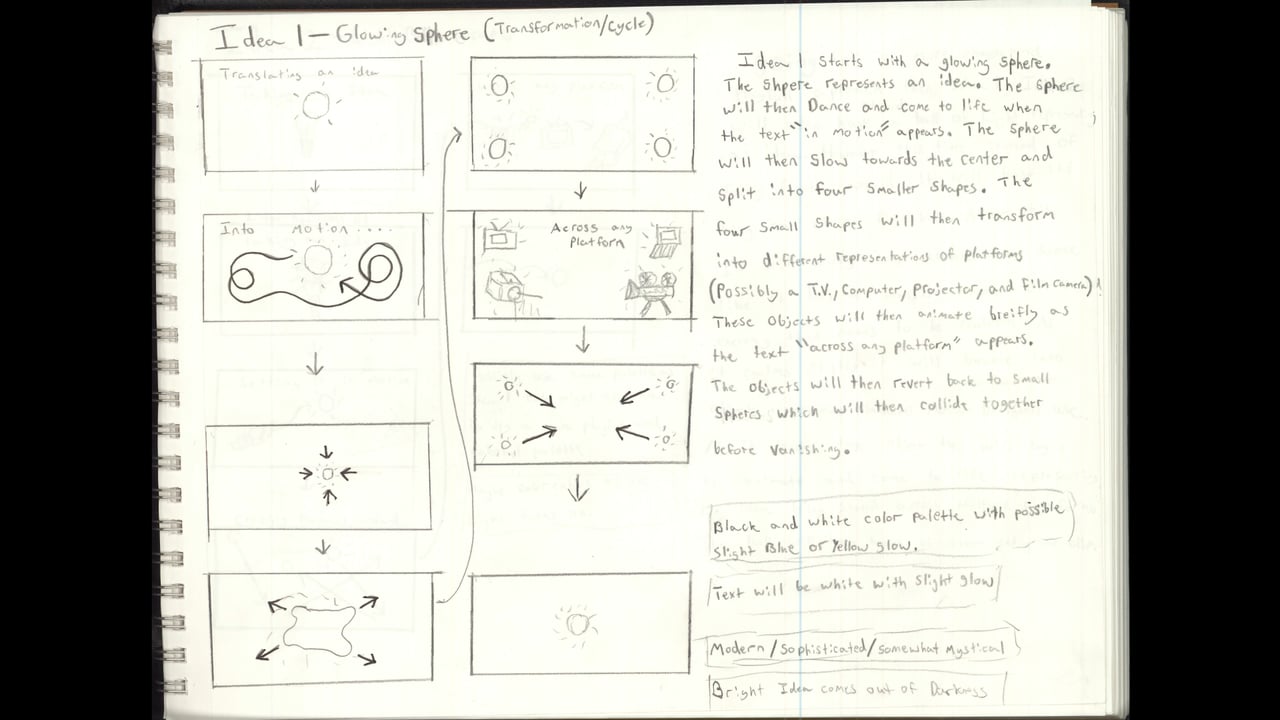 Idea 1 — Glowing Sphere (Transformation/Cycle)
Translating an idea
Into motion....
Across any
platform
Idea 1 starts with a glowing sphere.
The Shpere represents an idea. The sphere
will then Dance and come to life when
the text "in motion" appears. The sphere
will then slow towards the center and
split into four smaller shapes. The
four small shapes will then transform
into different representations of platforms
(Possibly a T.V., Computer, Projector, and Film Camera)
These objects will then animate breifly as
the text "across any platform" appears.
The objects will then revert back to small
spheres which will then collide together
before vanishing.
Black and white color palette with possible
slight Blue or Yellow glow.
Text will be white with slight glow
Modern/Sophisticated/Somewhat Mystical
Bright Idea comes out of Darkness